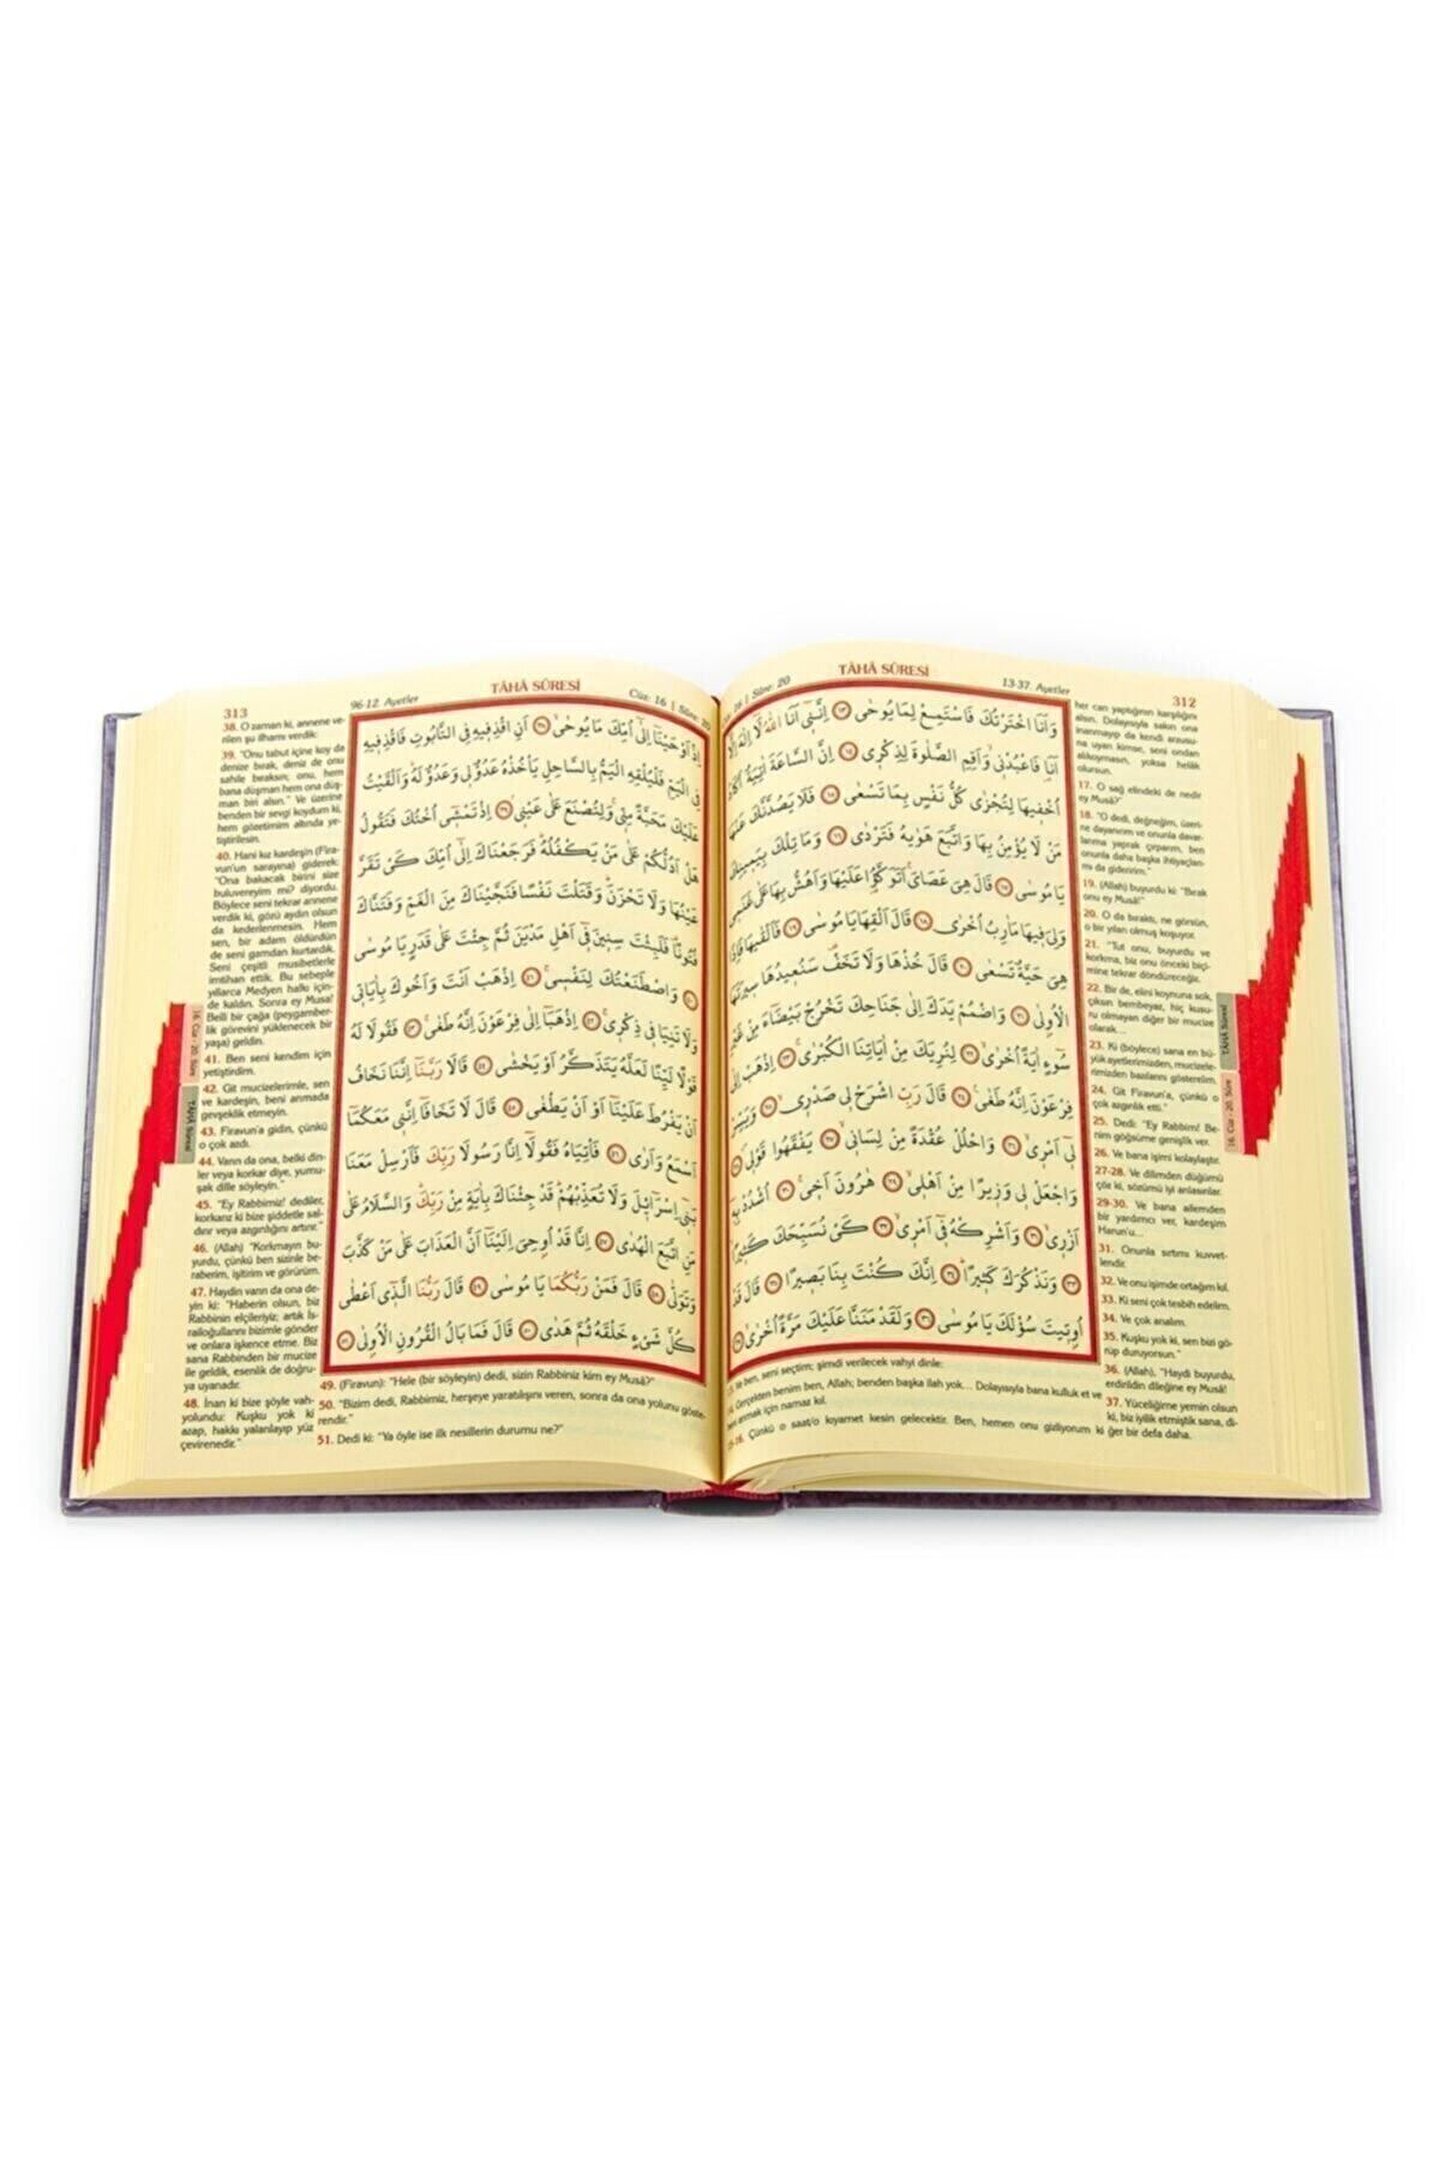 312
TÂHÂ SÛRESİ
13-37. Ayetler
Sûre: 20
وَاَنَا اخْتَرْتُكَ فَاسْتَمِعْ لِمَا يُوحٰى ﴿١٣﴾ اِنَّنٓى اَنَا اللّٰهُ لَٓا اِلٰهَ اِلَّٓا
اَنَا۬ فَاعْبُدْنٖى وَاَقِمِ الصَّلٰوةَ لِذِكْرٖى ﴿١٤﴾ اِنَّ السَّاعَةَ اٰتِيَةٌ اَكَادُ
اُخْفٖيهَا لِتُجْزٰى كُلُّ نَفْسٍ بِمَا تَسْعٰى ﴿١٥﴾ فَلَا يَصُدَّنَّكَ عَنْهَا
مَنْ لَا يُؤْمِنُ بِهَا وَاتَّبَعَ هَوٰيهُ فَتَرْدٰى ﴿١٦﴾ وَمَا تِلْكَ بِيَمٖينِكَ
يَا مُوسٰى ﴿١٧﴾ قَالَ هِىَ عَصَاىَ اَتَوَكَّؤُ۬ا عَلَيْهَا وَاَهُشُّ بِهَا عَلٰى غَنَمٖى
وَلِىَ فٖيهَا مَاٰرِبُ اُخْرٰى ﴿١٨﴾ قَالَ اَلْقِهَا يَا مُوسٰى ﴿١٩﴾ فَاَلْقٰيهَا فَاِذَا
هِىَ حَيَّةٌ تَسْعٰى ﴿٢٠﴾ قَالَ خُذْهَا وَلَا تَخَفْ سَنُعٖيدُهَا سٖيرَتَهَا
الْاُو۫لٰى ﴿٢١﴾ وَاضْمُمْ يَدَكَ اِلٰى جَنَاحِكَ تَخْرُجْ بَيْضَٓاءَ مِنْ غَيْرِ
سُٓوءٍ اٰيَةً اُخْرٰى ﴿٢٢﴾ لِنُرِيَكَ مِنْ اٰيَاتِنَا الْكُبْرٰى ﴿٢٣﴾ اِذْهَبْ اِلٰى
فِرْعَوْنَ اِنَّهُ طَغٰى ﴿٢٤﴾ قَالَ رَبِّ اشْرَحْ لٖى صَدْرٖى ﴿٢٥﴾ وَيَسِّرْ
لٖٓى اَمْرٖى ﴿٢٦﴾ وَاحْلُلْ عُقْدَةً مِنْ لِسَانٖى ﴿٢٧﴾ يَفْقَهُوا قَوْلٖى ﴿٢٨﴾
وَاجْعَلْ لٖى وَزٖيرًا مِنْ اَهْلٖى ﴿٢٩﴾ هٰرُونَ اَخٖى ﴿٣٠﴾ اُشْدُدْ بِهٖٓ
اَزْرٖى ﴿٣١﴾ وَاَشْرِكْهُ فٖٓى اَمْرٖى ﴿٣٢﴾ كَىْ نُسَبِّحَكَ كَثٖيرًا
﴿٣٣﴾ وَنَذْكُرَكَ كَثٖيرًا ﴿٣٤﴾ اِنَّكَ كُنْتَ بِنَا بَصٖيرًا ﴿٣٥﴾ قَالَ قَدْ
اُو۫تٖيتَ سُؤْلَكَ يَا مُوسٰى ﴿٣٦﴾ وَلَقَدْ مَنَنَّا عَلَيْكَ مَرَّةً اُخْرٰى ﴿٣٧﴾
Ve ben, seni seçtim; şimdi verilecek vahyi dinle:
Gerçekten benim ben, Allah; benden başka ilah yok... Dolayısıyla bana kulluk et ve
anmak için namaz kıl.
Çünkü o saat/o kıyamet kesin gelecektir. Ben, hemen onu gizliyorum ki
her can yaptığının karşılığını
alsın. Dolayısıyla sakın ona
inanmayıp da kendi arzusu-
na uyan kimse, seni ondan
alıkoymasın, yoksa helâk
olursun.
17. O sağ elindeki de nedir
ey Musâ?"
18. "O dedi, değneğim, üzeri-
ne dayanırım ve onunla davar-
larıma yaprak çırparım, ben
onunla daha başka ihtiyaçları-
mı da gideririm."
19. (Allah) buyurdu ki: "Bırak
onu ey Musâ!"
20. O da bıraktı, ne görsün,
o bir yılan olmuş koşuyor.
21. "Tut onu, buyurdu ve
korkma, biz onu önceki biçi-
mine tekrar döndüreceğiz.
22. Bir de, elini koynuna sok,
çıksın bembeyaz, hiç kusu-
ru olmayan diğer bir mucize
olarak...
23. Ki (böylece) sana en bü-
yük ayetlerimizden, mucizele-
rimizden bazılarını gösterelim.
24. Git Firavun'a, çünkü o
çok azgınlık etti."
25. Dedi: "Ey Rabbim! Be-
nim göğsüme genişlik ver.
26. Ve bana işimi kolaylaştır.
27-28. Ve dilimden düğümü
çöz ki, sözümü iyi anlasınlar.
29-30. Ve bana ailemden
bir yardımcı ver, kardeşim
Harun'u...
31. Onunla sırtımı kuvvet-
lendir.
32. Ve onu işimde ortağım kıl.
33. Ki seni çok tesbih edelim.
34. Ve çok analım.
35. Kuşku yok ki, sen bizi gö-
rüp duruyorsun."
36. (Allah), "Haydi buyurdu,
erdirildin dileğine ey Musâ!
37. Yüceliğime yemin olsun
ki, biz iyilik etmiştik sana, di-
ğer bir defa daha.
TÂHÂ Sûresi
16. Cüz - 20. Sûre
313
96-12. Ayetler
TÂHÂ SÛRESİ
Cüz: 16 | Sûre: 20
اِذْ اَوْحَيْنَٓا اِلٰٓى اُمِّكَ مَا يُوحٰى ﴿٣٨﴾ اَنِ اقْذِفٖيهِ فِى التَّابُوتِ فَاقْذِفٖيهِ
فِى الْيَمِّ فَلْيُلْقِهِ الْيَمُّ بِالسَّاحِلِ يَاْخُذْهُ عَدُوٌّ لٖى وَعَدُوٌّ لَهُ وَاَلْقَيْتُ
عَلَيْكَ مَحَبَّةً مِنّٖى وَلِتُصْنَعَ عَلٰى عَيْنٖى ﴿٣٩﴾ اِذْ تَمْشٖٓى اُخْتُكَ فَتَقُولُ
هَلْ اَدُلُّكُمْ عَلٰى مَنْ يَكْفُلُهُ فَرَجَعْنَاكَ اِلٰٓى اُمِّكَ كَىْ تَقَرَّ
عَيْنُهَا وَلَا تَحْزَنَ وَقَتَلْتَ نَفْسًا فَنَجَّيْنَاكَ مِنَ الْغَمِّ وَفَتَنَّاكَ
فُتُونًا فَلَبِثْتَ سِنٖينَ فٖٓى اَهْلِ مَدْيَنَ ثُمَّ جِئْتَ عَلٰى قَدَرٍ يَا مُوسٰى
﴿٤٠﴾ وَاصْطَنَعْتُكَ لِنَفْسٖى ﴿٤١﴾ اِذْهَبْ اَنْتَ وَاَخُوكَ بِاٰيَاتٖى
وَلَا تَنِيَا فٖى ذِكْرٖى ﴿٤٢﴾ اِذْهَبَٓا اِلٰى فِرْعَوْنَ اِنَّهُ طَغٰى ﴿٤٣﴾ فَقُولَا لَهُ
قَوْلًا لَيِّنًا لَعَلَّهُ يَتَذَكَّرُ اَوْ يَخْشٰى ﴿٤٤﴾ قَالَا رَبَّنَٓا اِنَّنَا نَخَافُ
اَنْ يَفْرُطَ عَلَيْنَٓا اَوْ اَنْ يَطْغٰى ﴿٤٥﴾ قَالَ لَا تَخَافَٓا اِنَّنٖى مَعَكُمَٓا
اَسْمَعُ وَاَرٰى ﴿٤٦﴾ فَاْتِيَاهُ فَقُولَٓا اِنَّا رَسُولَا رَبِّكَ فَاَرْسِلْ مَعَنَا
بَنٖٓى اِسْرَٓائٖلَ وَلَا تُعَذِّبْهُمْ قَدْ جِئْنَاكَ بِاٰيَةٍ مِنْ رَبِّكَ وَالسَّلَامُ عَلٰى
مَنِ اتَّبَعَ الْهُدٰى ﴿٤٧﴾ اِنَّا قَدْ اُو۫حِىَ اِلَيْنَٓا اَنَّ الْعَذَابَ عَلٰى مَنْ كَذَّبَ
وَتَوَلّٰى ﴿٤٨﴾ قَالَ فَمَنْ رَبُّكُمَا يَا مُوسٰى ﴿٤٩﴾ قَالَ رَبُّنَا الَّذٖٓى اَعْطٰى
كُلَّ شَىْءٍ خَلْقَهُ ثُمَّ هَدٰى ﴿٥٠﴾ قَالَ فَمَا بَالُ الْقُرُونِ الْاُو۫لٰى ﴿٥١﴾
38. O zaman ki, annene ve-
rilen şu ilhamı verdik:
39. "Onu tabut içine koy da
denize bırak, deniz de onu
sahile bıraksın; onu, hem
bana düşman hem ona düş-
man biri alsın." Ve üzerine
benden bir sevgi koydum ki,
hem gözetimim altında ye-
tiştirilesin.
40. Hani kız kardeşin (Fira-
vun'un sarayına) giderek:
"Ona bakacak birini size
buluvereyim mi? diyordu.
Böylece seni tekrar annene
verdik ki, gözü aydın olsun
da kederlenmesin. Hem
sen, bir adam öldürdün
de seni gamdan kurtardık.
Seni çeşitli musibetlerle
imtihan ettik. Bu sebeple
yıllarca Medyen halkı için-
de kaldın. Sonra ey Musa!
Belli bir çağa (peygamber-
lik görevini yüklenecek bir
yaşa) geldin.
41. Ben seni kendim için
yetiştirdim.
42. Git mucizelerimle, sen
ve kardeşin, beni anmada
gevşeklik etmeyin.
43. Firavun'a gidin, çünkü
o çok azdı.
44. Varın da ona, belki din-
ler veya korkar diye, yumu-
şak dille söyleyin."
45. "Ey Rabbimiz! dediler,
korkarız ki bize şiddetle sal-
dırır veya azgınlığını artırır."
46. (Allah) "Korkmayın bu-
yurdu, çünkü ben sizinle be-
raberim, işitirim ve görürüm.
47. Haydin varın da ona de-
yin ki: "Haberin olsun, biz
Rabbinin elçileriyiz; artık İs-
railoğullarını bizimle gönder
ve onlara işkence etme. Biz
sana Rabbinden bir mucize
ile geldik, esenlik de doğru-
ya uyanadır.
48. İnan ki bize şöyle vah-
yolundu: Kuşku yok ki
azap, hakkı yalanlayıp yüz
çevirenedir."
49. (Firavun): "Hele (bir söyleyin) dedi, sizin Rabbiniz kim ey Musâ?"
50. "Bizim dedi, Rabbimiz, herşeye yaratılışını veren, sonra da ona yolunu göste-
rendir."
51. Dedi ki: "Ya öyle ise ilk nesillerin durumu ne?"
16. Cüz - 20. Sûre
TÂHÂ Sûresi